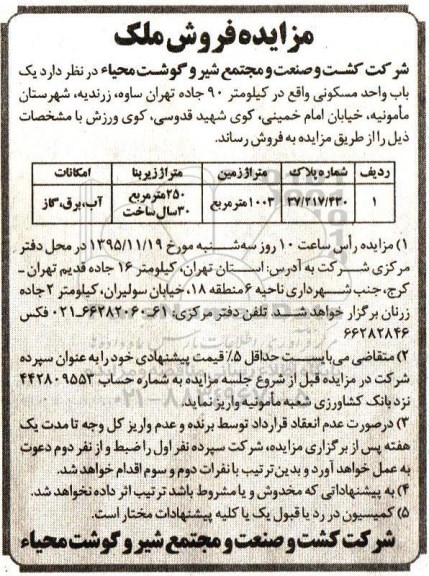 مزایده فروش ملک
شرکت کشت و صنعت و مجتمع شیر و گوشت محیاء در نظر دارد یک
باب واحد مسکونی واقع در کیلومتر ۹۰ جاده تهران ساوه، زرندیه، شهرستان
مأمونیه، خیابان امام خمینی، کوی شهید قدوسی، کوی ورزش با مشخصات
ذیل را از طریق مزایده به فروش رساند.
ردیف شماره پلاک متراژ زمین متراژ زیربنا امکانات
۱ ۳۷/۲۱۷/۴۳۰ ۱۰۰۳ مترمربع ۲۵۰ مترمربع ۳۰ سال ساخت آب، برق، گاز
۱) مزایده رأس ساعت ۱۰ روز سه‌شنبه مورخ ۱۳۹۵/۱۱/۱۹ در محل دفتر
مرکزی شرکت به آدرس: استان تهران، کیلومتر ۱۶ جاده قدیم تهران ـ
کرج، جنب شهرداری ناحیه ۶ منطقه ۱۸، خیابان سولیران، کیلومتر ۲ جاده
زرنان برگزار خواهد شد. تلفن دفتر مرکزی: ۶۱ـ۶۶۲۸۲۰۶۰ـ۰۲۱ فکس
۶۶۲۸۲۸۴۶
۲) متقاضی می‌بایست حداقل ۵٪ قیمت پیشنهادی خود را به عنوان سپرده
شرکت در مزایده قبل از شروع جلسه مزایده به شماره حساب ۴۴۲۸۰۹۵۵۳
نزد بانک کشاورزی شعبه مأمونیه واریز نماید.
۳) درصورت عدم انعقاد قرارداد توسط برنده و عدم واریز کل وجه تا مدت یک
هفته پس از برگزاری مزایده، شرکت سپرده نفر اول را ضبط و از نفر دوم دعوت
به عمل خواهد آورد و بدین ترتیب با نفرات دوم و سوم اقدام خواهد شد.
۴) به پیشنهاداتی که مخدوش و یا مشروط باشد ترتیب اثر داده نخواهد شد.
۵) کمیسیون در رد یا قبول یک یا کلیه پیشنهادات مختار است.
شرکت کشت و صنعت و مجتمع شیر و گوشت محیاء